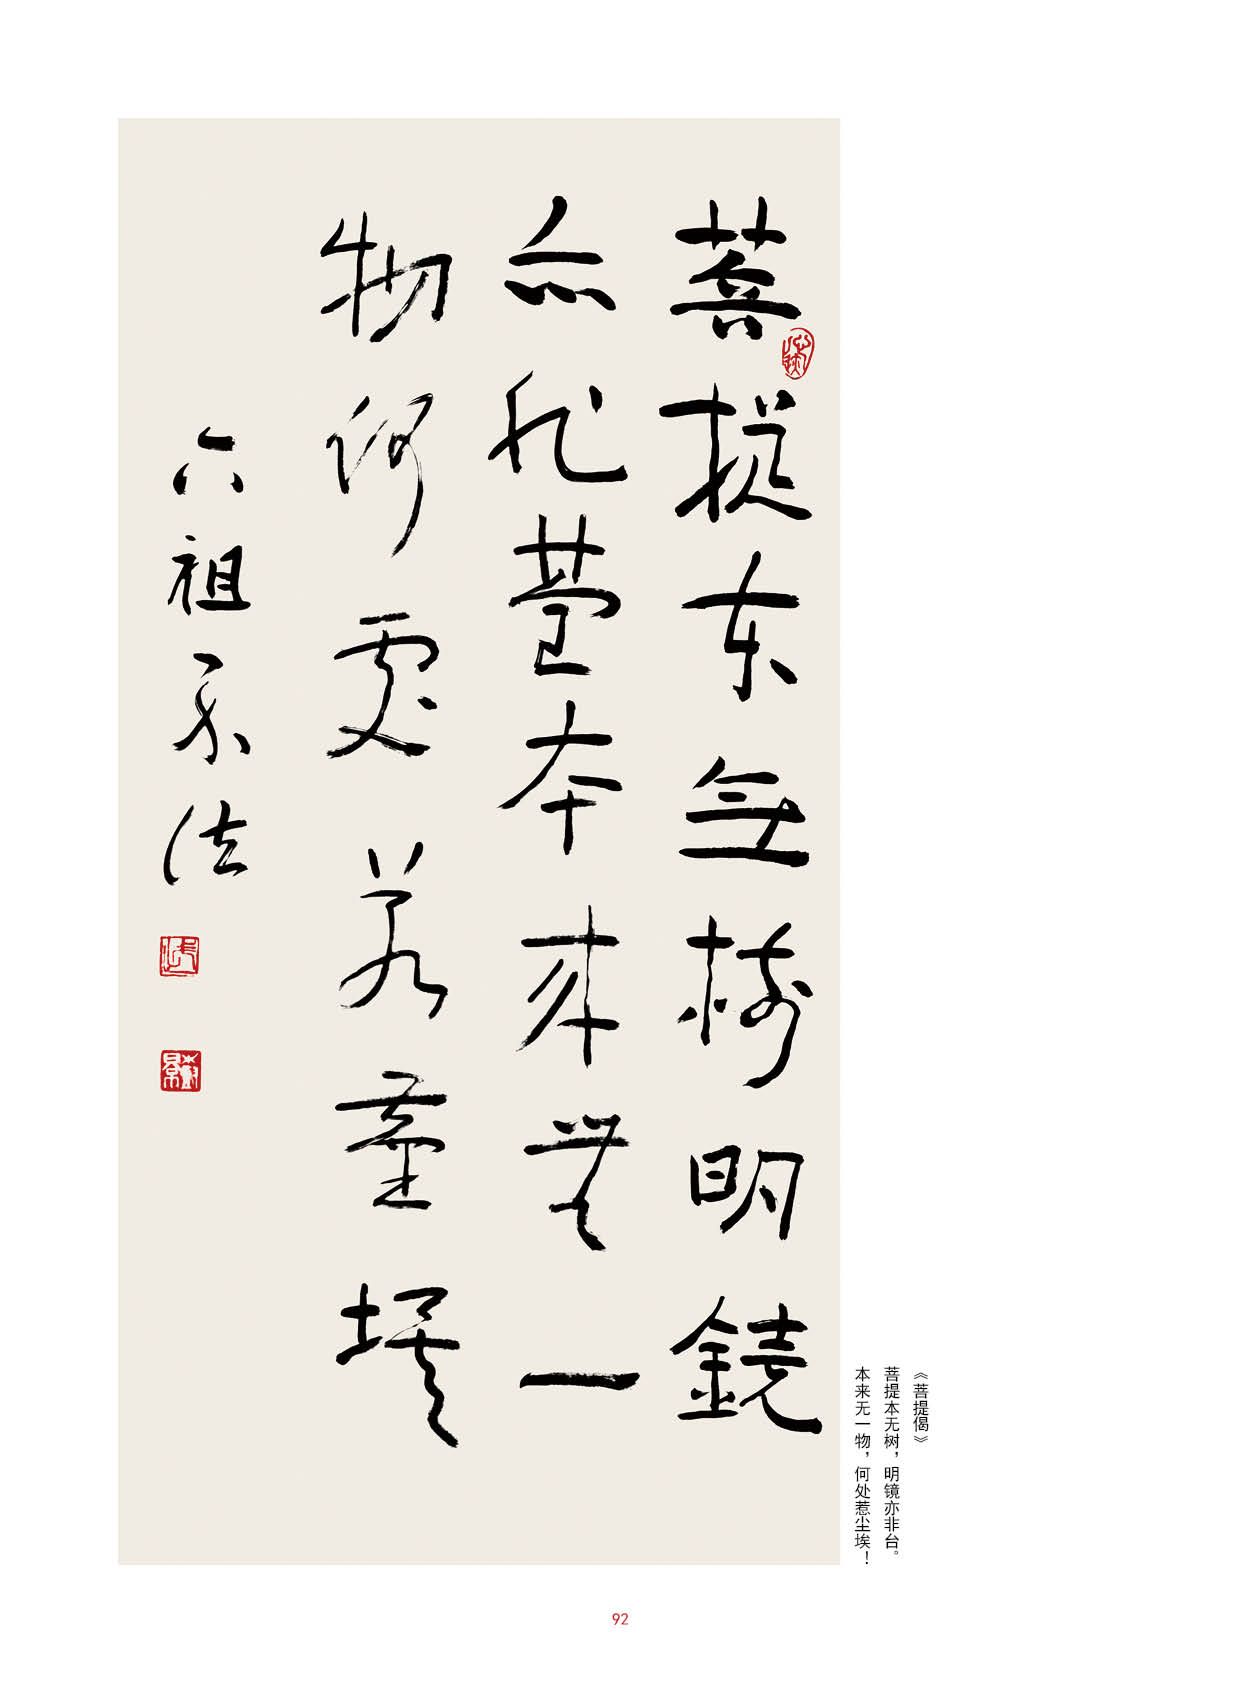 菩提本無樹明鏡
亦非臺本來無一
物何處惹塵埃
六祖 法
《菩提偈》
菩提本无树，明镜亦非台。
本来无一物，何处惹尘埃！
92